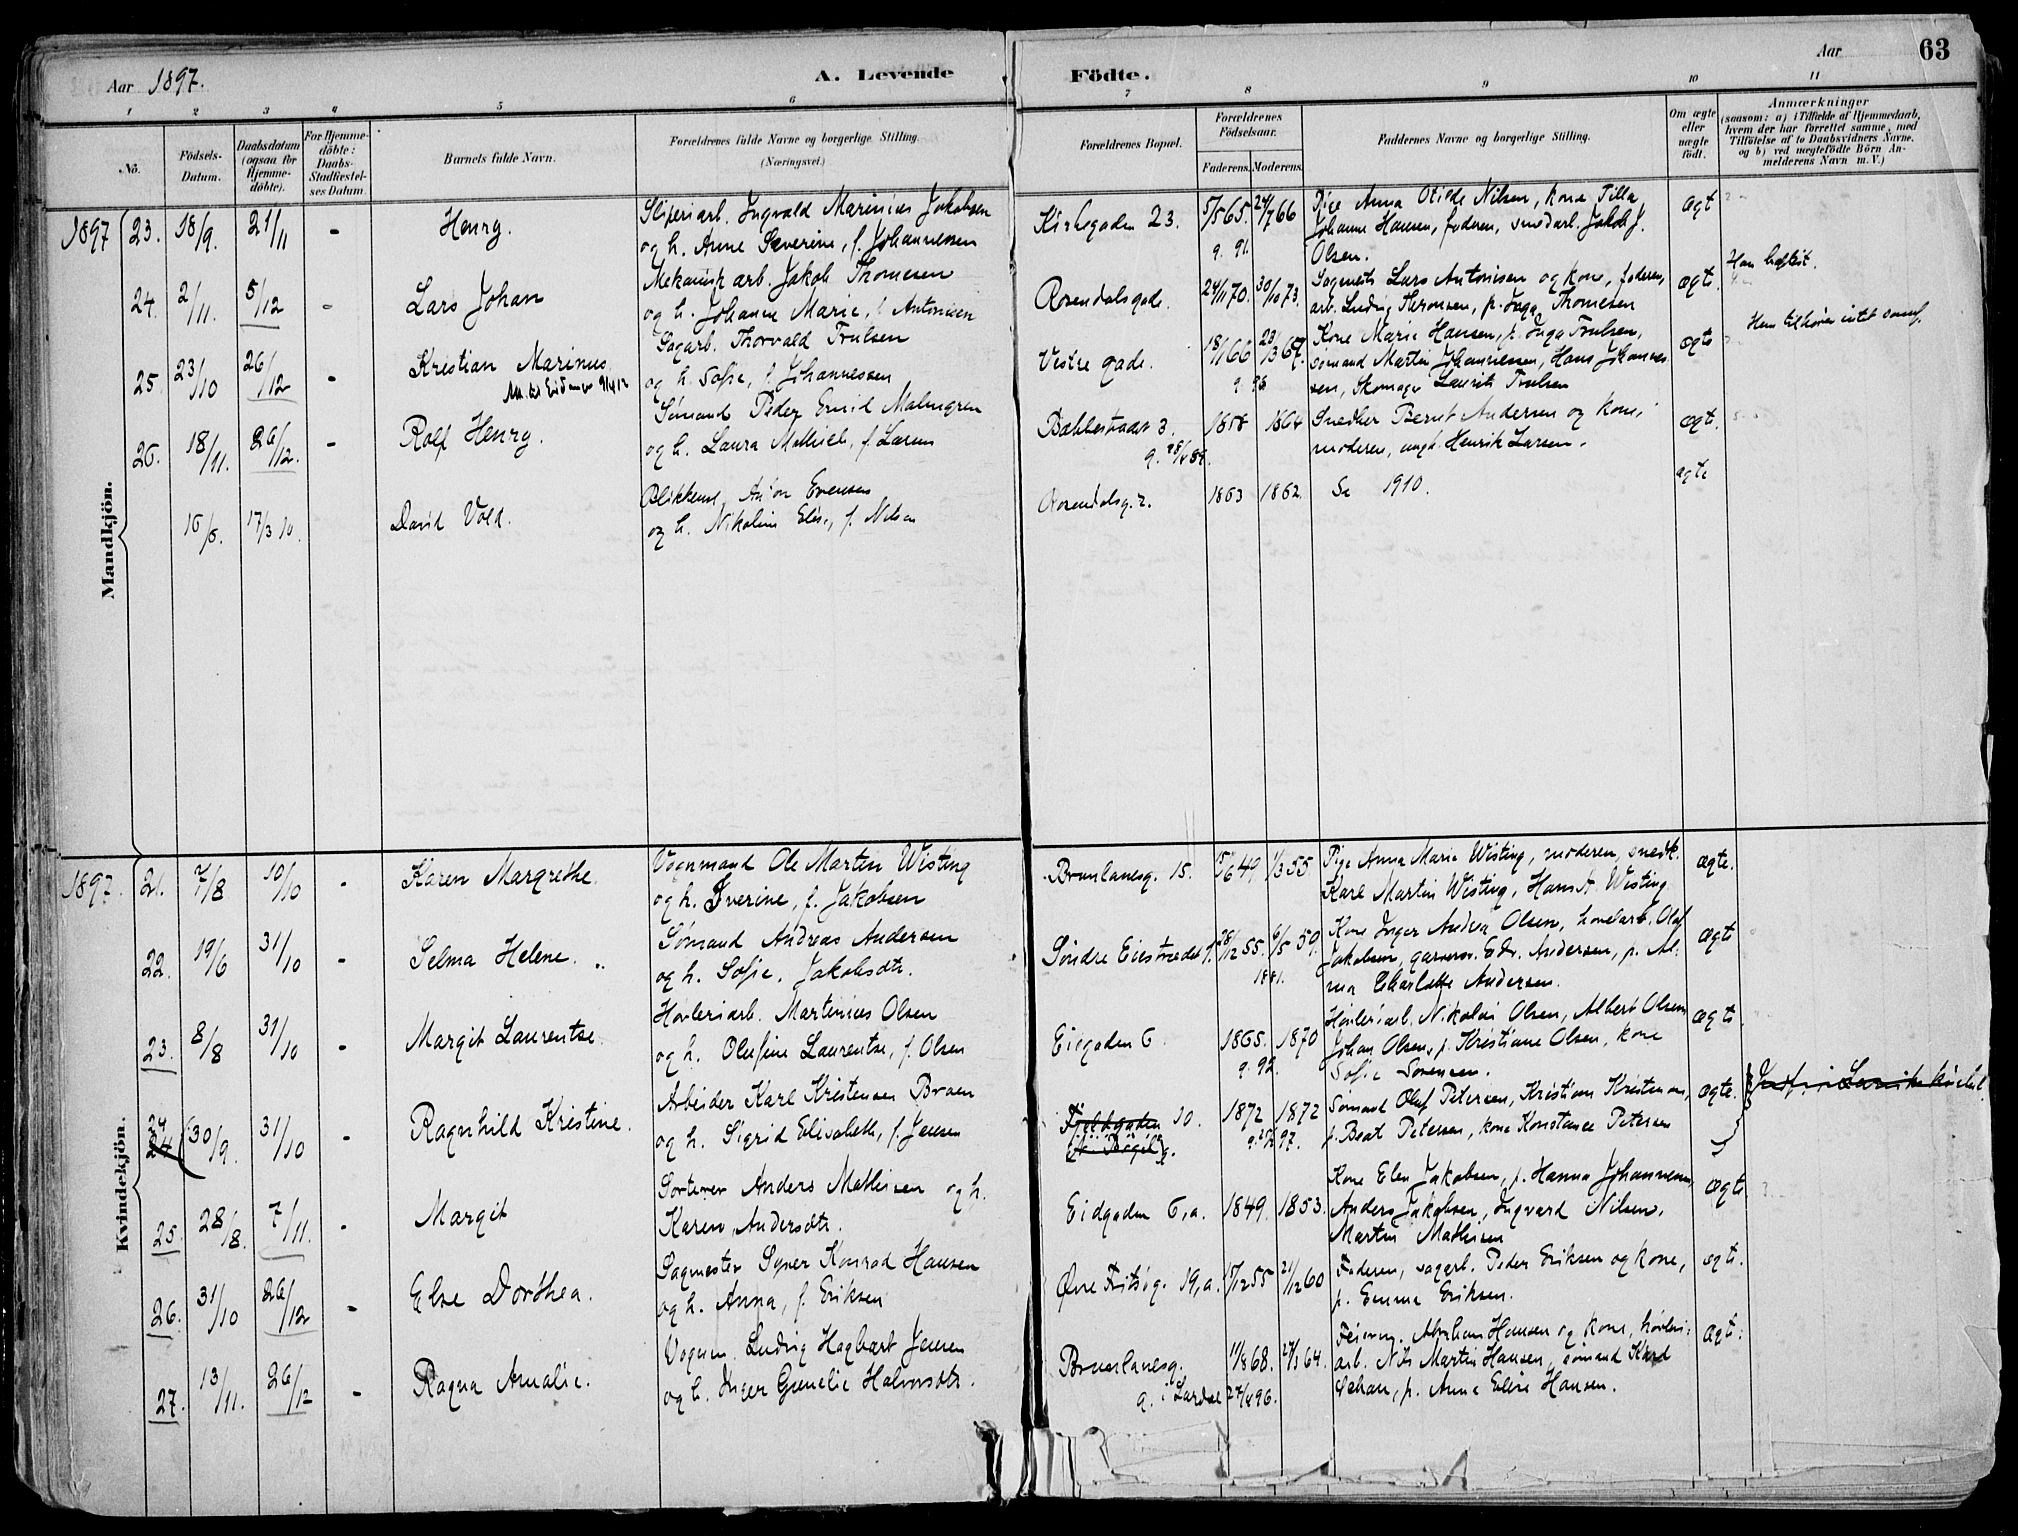 Aar 1897.
A. Levende
Födte.
Aar
63
1 2 3 4 5 6 7 8 9 10 11
No.
Födsels-
Datum.
Daabsdatum
(ogsaa for
Hjemme-
döbte).
For Hjemme-
döbte:
Daabs-
Stadfæstel-
ses Datum
Barnets fulde Navn.
Forældrenes fulde Navne og borgerlige Stilling.
(Næringsvei.)
Forældrenes Bopæl.
Forældrenes
Födselsaar.
Faderens. Moderens.
Faddernes Navne og borgerlige Stilling.
Om ægte
eller
uægte
födt.
Anmærkninger
(saasom: a) i Tilfælde af Hjemmedaab,
hvem der har forrettet samme, med
Tilföielse af to Daabsvidners Navne.
og b) ved uægtefödte Börn An-
melderens Navn m. V.)
Mandkjön.
1897 23. 18/9. 21/11 - Henry.
Sliperiarb. Ingvald Marinius Jakobsen
og h. Anne Severine, f. Johannessen
Kirkegaden 23. 5/5 65. 24/7 66
g. 91.
Pige Anna Otilde Nilsen, kone Tilla
Johanne Hansen, faderen, smedarb. Jakob J.
Olsen.
ægt
24. 2/11. 5/12 - Lars Johan
Mekanisk arb. Jakob Thomesen
og h. Johanne Marie, f. Antonisen
Rosendalsgade. 24/11 70. 30/10 73.
Sagmests Lars Antonisen og kone, faderen,
arb. Ludvig Thronsen, p. Inga Thomesen
ægt.
25. 23/10 26/12 - Kristian Marinus
Sagarb. Thorvald Trulsen
og h. Sofie, f. Johannessen
Vestre gade. 18/1 66 23/3 67.
Kone Marie Hansen, p. Inga Trulsen,
sømand Martin Johannessen, Hans Johannes
sen, Skomager Laurits Trulsen
ægte
Han tilhører intet samf.
26. 18/11. 26/12. - Rolf Henry.
Sømand Peder Emil Malmgren
og h. Laura Mathilde, f. Larsen
1858 1864
Snedker Bernt Andersen og kone,
moderen, ungk. Henrik Larsen.
ægt.
16/5. 17/3 10. David Vold.
Blikkensl. Anton Evensen
og h. Nikoline Elise, f. Nilsen
Rosendalsg. 2. 1863 1862. Se 1910.
ægte
Kvindekjön.
1897. 21. 7/8 10/10 - Karen Margrethe.
Vognmand Ole Martin Wisting
og h. Iverine, f. Jakobsen
Brunlanesg. 15. 15/6 49 1/3 55
Pige Anna Marie Wisting, moderen, snedk.
Karl Martin Wisting, Hans A. Wisting
ægte.
22. 19/6 31/10 - Selma Helene.
Sømand Andreas Andersen
og h. Sofie, Jakobsdtr.
Søndre Eiestrædet 28/12 55. 6/5 59.
1881.
Kone Inger Andrea Olsen, høvlarb. Olaf
Jakobsen, garvers. Edv. Andersen, p. Al-
ma Charlotte Andersen.
ægte
23. 8/8 31/10 - Margit Laurentse.
Høvleriarb. Martinius Olsen
og h. Olufine Laurentse, f. Olsen
Eiegaden 6. 1865. 1870
g. 92.
Høvleriarb. Nikolai Olsen, Albert Olsen
Johan Olsen, p. Kristiane Olsen, kone
Sofie Sørensen.
ægte
24 30/9. 31/10 - Ragnhild Kristine.
Arbeider Karl Kristensen Braen
og h. Sigrid Elisabeth, f. Jensen
Fjeldgaden 10. 1872 1872
Sømand Oluf Petersen, Kristian Kristensen,
p. Beat Petersen, kone Konstance Petersen
ægte.
25. 28/8. 7/11. - Margit
Sorterer Anders Mathisen og h.
Karen Andersdtr.
Eidgaden 6, a. 1849. 1853.
Kone Elen Jakobsen, p. Hanna Johannesen
Anders Jakobsen, Ingvard Nilsen,
Martin Mathisen
ægte
26. 31/10 26/12 - Else Dorothea.
Sagmester Syver Konrad Hansen
og h. Anna, f. Eriksen
Øvre Fritsøg. 19, a. 17/12 55 21/12 60
Faderen, sagarb. Peder Eriksen og kone,
p. Emma Eriksen.
ægt.
27. 13/11. 26/12 - Ragna Amalie.
Vognm. Ludvig Hagbart Jensen
og h. Inger Gunelie Halvorsdtr.
Brunlanesg. 11/8 68. 27/1 64.
g. i Lardal 27/4 96.
Feierm. Abraham Hansen og kone, høvleri-
arb. Nils Martin Hansen, sømand Karl
Johan, p. Anne Elise Hansen.
ægt.